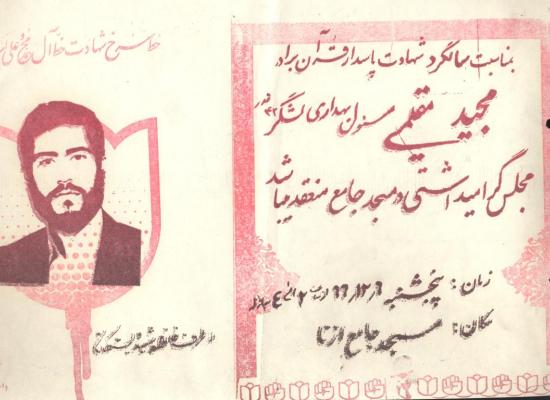 خط سرخ شهادت خط آل محمد و علی است
بمناسبت سالگرد شهادت پاسدار قرآن برادر
مجید مقیمی مسئول بهداری لشگر
مجلس گرامیداشتی در مسجد جامع منعقد میباشد
زمان: پنجشنبه ۶۶٫۱۲٫۶ از ساعت ۲ الی ٤
مکان: مسجد جامع ازنا